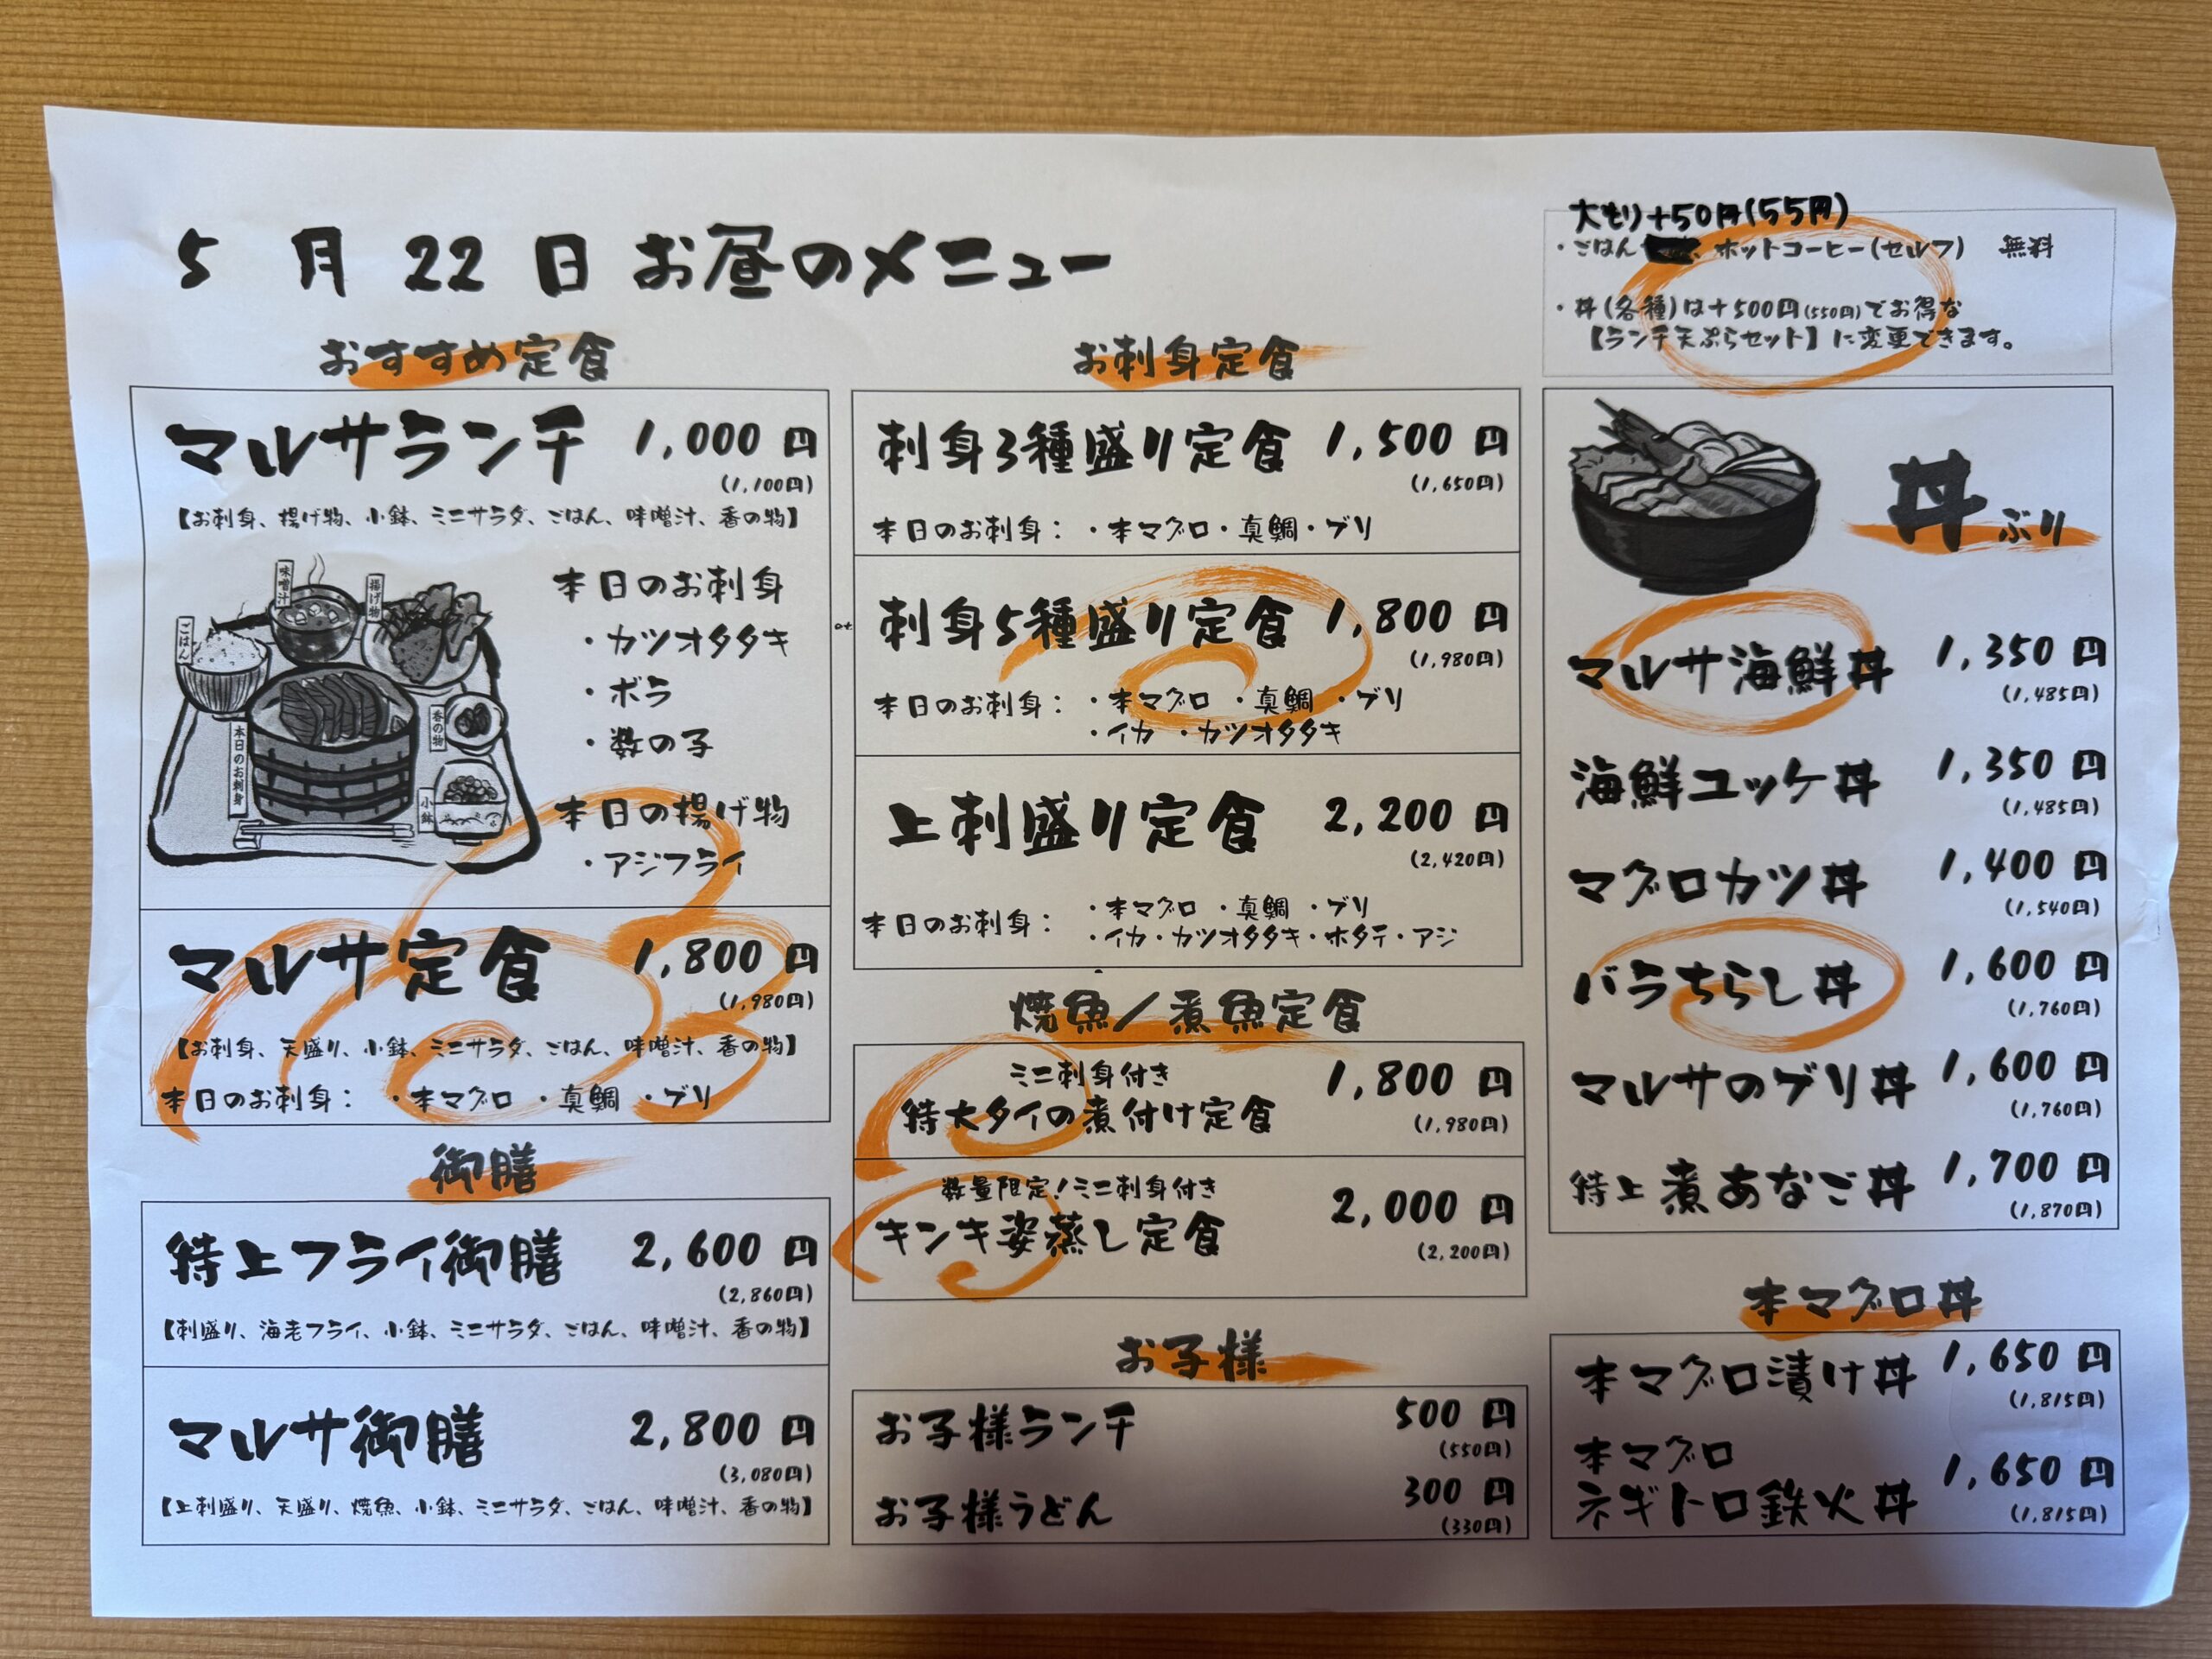 5 月 22 日 お昼のメニュー
大もり+50円(55円)
・ごはん 、ホットコーヒー(セルフ) 無料
・丼(各種)は+500円(550円)でお得な
【ランチ天ぷらセット】に変更できます。
おすすめ定食
マルサランチ 1,000円
(1,100円)
【お刺身、揚げ物、小鉢、ミニサラダ、ごはん、味噌汁、香の物】
味噌汁
揚げ物
ごはん
香の物
本日のお刺身
小鉢
本日のお刺身
・カツオタタキ
・ボラ
・数の子
本日の揚げ物
・アジフライ
マルサ定食 1,800円
(1,980円)
【お刺身、天盛り、小鉢、ミニサラダ、ごはん、味噌汁、香の物】
本日のお刺身: ・本マグロ ・真鯛 ・ブリ
御膳
特上フライ御膳 2,600円
(2,860円)
【刺盛り、海老フライ、小鉢、ミニサラダ、ごはん、味噌汁、香の物】
マルサ御膳 2,800円
(3,080円)
【上刺盛り、天盛り、焼魚、小鉢、ミニサラダ、ごはん、味噌汁、香の物】
お刺身定食
刺身3種盛り定食 1,500円
(1,650円)
本日のお刺身: ・本マグロ・真鯛・ブリ
刺身5種盛り定食 1,800円
(1,980円)
本日のお刺身: ・本マグロ ・真鯛 ・ブリ
・イカ ・カツオタタキ
上刺盛り定食 2,200円
(2,420円)
本日のお刺身: ・本マグロ ・真鯛 ・ブリ
・イカ・カツオタタキ・ホタテ・アジ
焼魚/煮魚定食
ミニ刺身付き
特大タイの煮付け定食 1,800円
(1,980円)
数量限定!ミニ刺身付き
キンキ姿蒸し定食 2,000円
(2,200円)
お子様
お子様ランチ 500円
(550円)
お子様うどん 300円
(330円)
丼ぶり
マルサ海鮮丼 1,350円
(1,485円)
海鮮ユッケ丼 1,350円
(1,485円)
マグロカツ丼 1,400円
(1,540円)
バラちらし丼 1,600円
(1,760円)
マルサのブリ丼 1,600円
(1,760円)
特上煮あなご丼 1,700円
(1,870円)
本マグロ丼
本マグロ漬け丼 1,650円
(1,815円)
本マグロ
ネギトロ鉄火丼 1,650円
(1,815円)